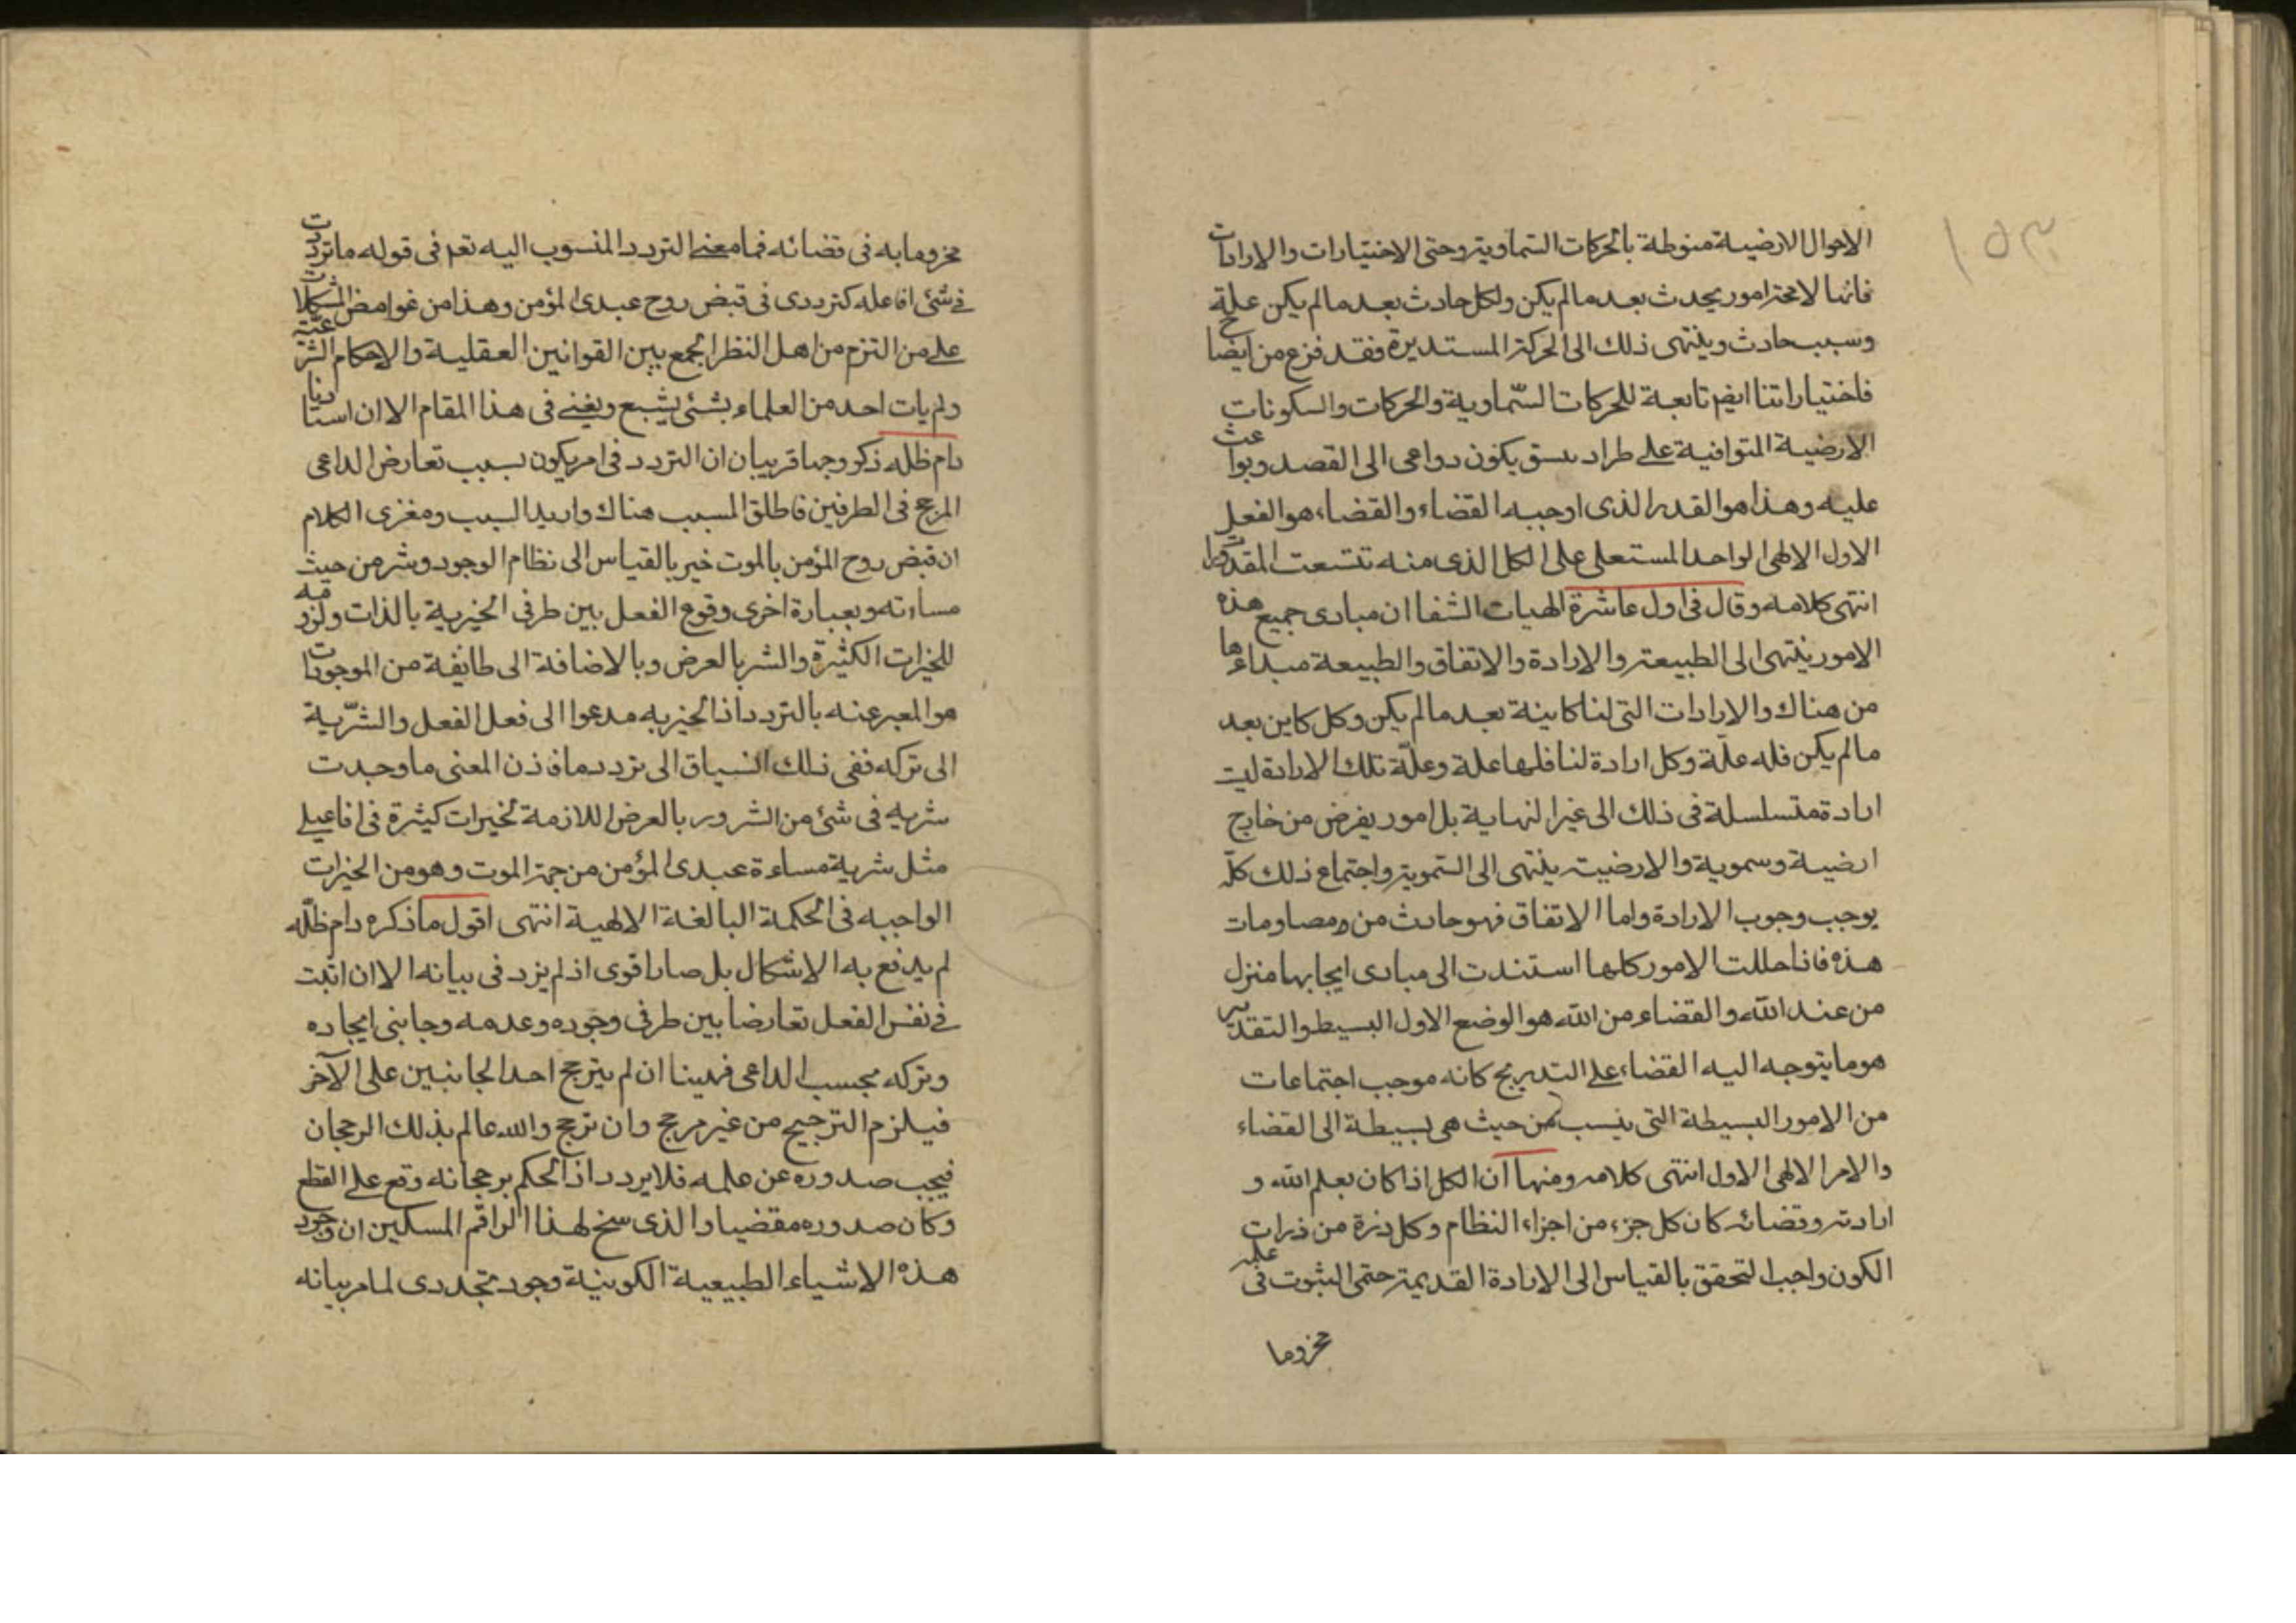 ١٥٣
الاحوال الارضية منوطة بالحركات السماوية وحتى الاختيارات والارادات
فانها لا محة امور يحدث بعد ما لم يكن ولكل حادث بعد ما لم يكن علة
وسبب حادث وينتهى ذلك الى الحركة المستديرة فقد فزع من ايضاح
فاختياراتنا ايضا تابعة للحركات السّماوية والحركات والسكونات
الارضية المتوافية على طراد بسق يكون دواعى الى القصد وبواعث
عليه وهذا هو القدر الذى اوجبه القضاء والقضاء هو الفعل
الاول الالهى الواحد المستعلى على الكل الذى منه تتسعت المقدورات
انتهى كلامه وقال فى اول عاشرة الهيات الشفا ان مبادى جميع هذه
الامور ينتهى الى الطبيعة والارادة والاتفاق والطبيعة مبداءها
من هناك والارادات التى لنا كاينة بعد ما لم يكن وكل كاين بعد
ما لم يكن فله علّة وكل ارادة لنا فلها علة وعلّة تلك الارادة ليت
ارادة متسلسلة فى ذلك الى غير النهاية بل امور يفرض من خارج
ارضية وسموية والارضيت ينتهى الى السموية واجتماع ذلك كلّه
يوجب وجوب الارادة واما الاتفاق فهو حادث من ومصاومات
هذه فاذا حللت الامور كلها استندت الى مبادى ايجابها منزل
من عند الله والقضاء من الله هو الوضع الاول البسيط والتقدير
هو ما يتوجه اليه القضاء على التدريج كانه موجب اجتماعات
من الامور البسيطة التى ينسب من حيث هى بسيطة الى القضاء
والامر الالهى الاول انتهى كلامه ومنها ان الكل اذا كان بعلم الله و
ارادته وقضائه كان كل جزء من اجزاء النظام وكل ذرة من ذرات
الكون واجب التحقق بالقياس الى الارادة القديمة حتى الثبوت فى علمه
مخروما
مخروما به فى قضائه فما معنى التردد المنسوب اليه تعم فى قوله ما ترددت
فى شئ انا فاعله كترددى فى قبض روح عبدى المؤمن وهذا من غوامض المشكلات
على من التزم من اهل النظر الجمع بين القوانين العقلية والاحكام الشرعيّة
ولم يات احد من العلماء بشئ يشبع ويغنى فى هذا المقام الا ان استادنا
دام ظله ذكر وجها قريبا ان التردد فى امر يكون بسبب تعارض الداعى
المرجح فى الطرفين فاطلق المسبب هناك واريد السبب ومغزى الكلام
ان قبض روح المؤمن بالموت خير بالقياس الى نظام الوجود وشر من حيث
مساءته وبعبارة اخرى وقوع الفعل بين طرفى الخيرية بالذات ولزومه
للخيرات الكثيرة والشر بالعرض وبالاضافة الى طايفة من الموجودات
هو المعبر عنه بالتردد اذ الخيريه مدعوا الى فعل الفعل والشرّية
الى تركه ففى ذلك انسياق الى تردد ما فاذن المعنى ما وجدت
شريه فى شئ من الشرور بالعرض اللازمة لخيرات كثيرة فى افاعيلى
مثل شرية مساءة عبدى المؤمن من جهة الموت وهو من الخيرات
الواجبه فى الحكمة البالغة الالهية انتهى اقول ما ذكره دام ظلّه
لم يدفع به الاشكال بل صار اقوى اذ لم يزد فى بيانه الا ان اثبت
فى نفس الفعل تعارضا بين طرفى وجوده وعدمه وجانبى ايجاده
وتركه بحسب الداعى فهينا ان لم يترجح احد الجانبين على الآخر
فيلزم الترجيح من غير مرجح وان ترجح والله عالم بذلك الرجحان
فيجب صدوره عن علمه فلا يردد اذ الحكم برجحانه وقع على القطع
وكان صدوره مقضيا والذى سخ لهذا الراقم المسكين ان وجود
هذه الاشياء الطبيعية الكونية وجود تجددى لما مر بيانه